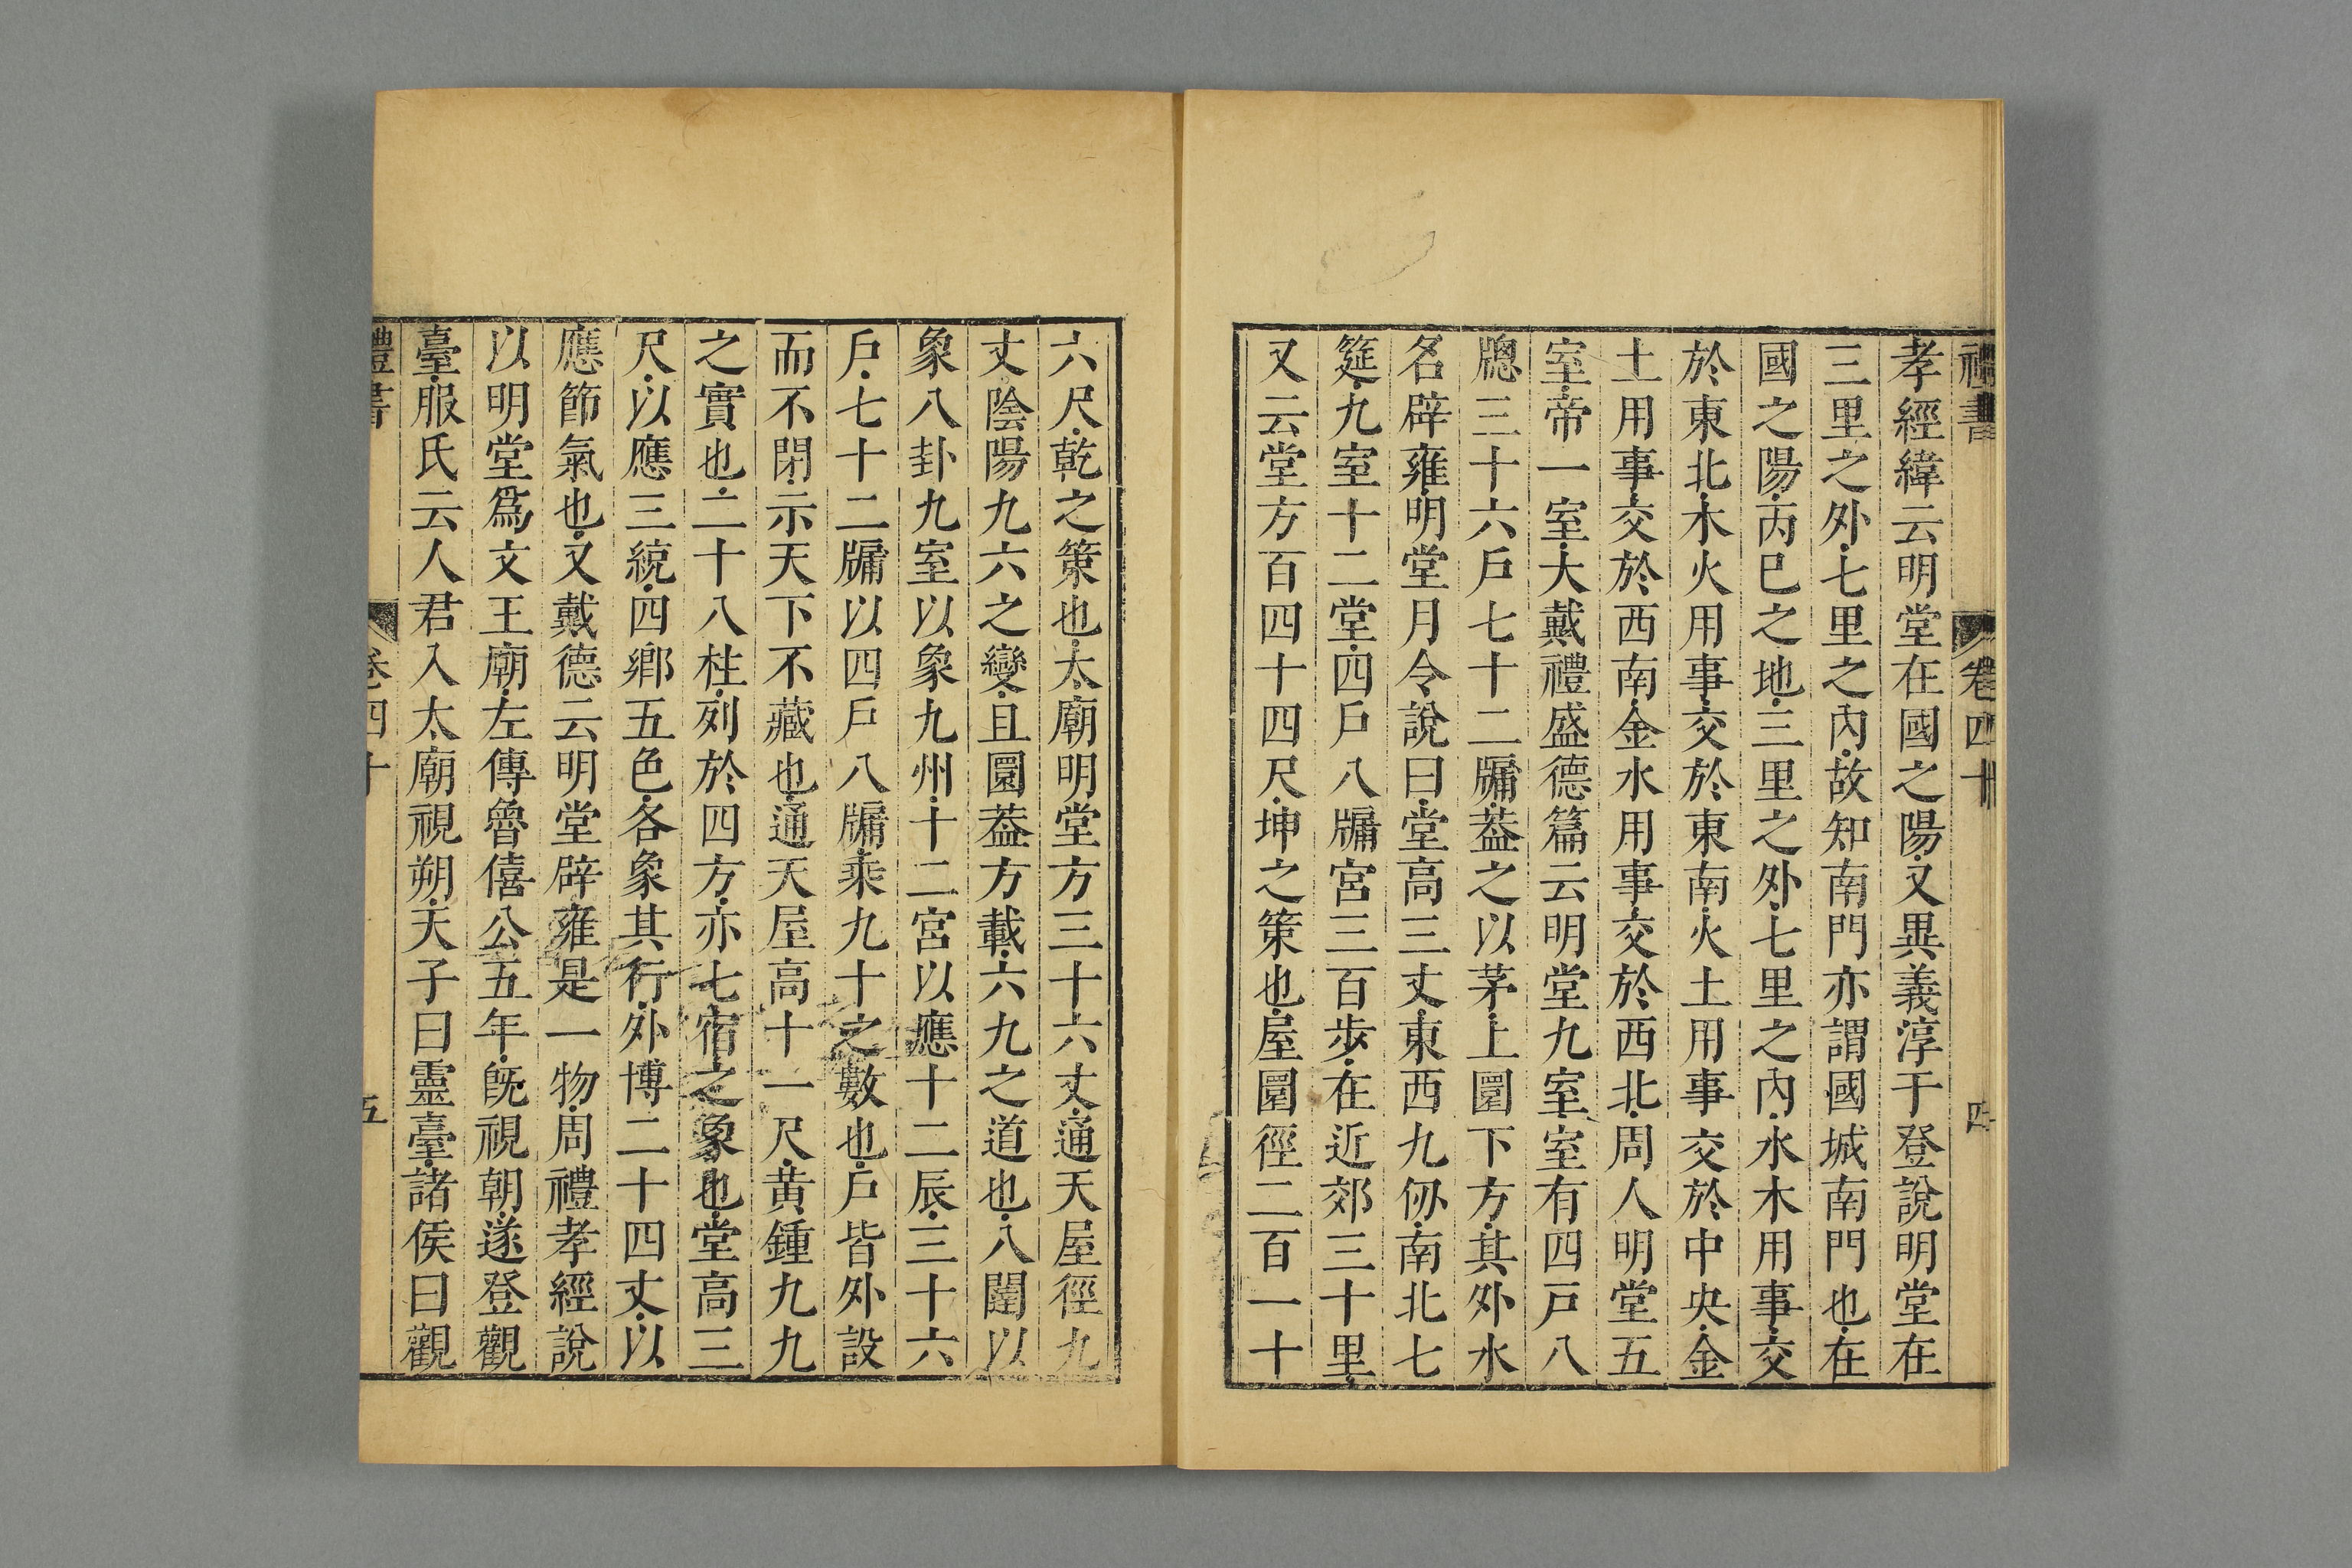 禮書
卷四十
四
孝經緯云明堂在國之陽又異義淳于登說明堂在
三里之外七里之內故知南門亦謂國城南門也在
國之陽丙巳之地三里之外七里之內水木用事交
於東北木火用事交於東南火土用事交於中央金
土用事交於西南金水用事交於西北周人明堂五
室帝一室大戴禮盛德篇云明堂九室室有四戸八
牎三十六戸七十二牖葢之以茅上圓下方其外水
名辟雍明堂月令說曰堂高三丈東西九仞南北七
筵九室十二堂四戸八牖宮三百步在近郊三十里
又云堂方百四十四尺坤之策也屋圓徑二百一十
六尺乾之策也太廟明堂方三十六丈通天屋徑九
丈陰陽九六之變且圜葢方載六九之道也八闥以
象八卦九室以象九州十二宮以應十二辰三十六
戸七十二牖以四戸八牖乘九十之數也戸皆外設
而不閉示天下不藏也通天屋高十一尺黄鍾九九
之實也二十八柱列於四方亦七宿之象也堂高三
尺以應三統四鄉五色各象其行外博二十四丈以
應節氣也又戴德云明堂辟雍是一物周禮孝經說
以明堂爲文王廟左傳魯僖公五年旣視朝遂登觀
臺服氏云人君入太廟視朔天子曰靈臺諸侯曰觀
禮書
卷四十
五